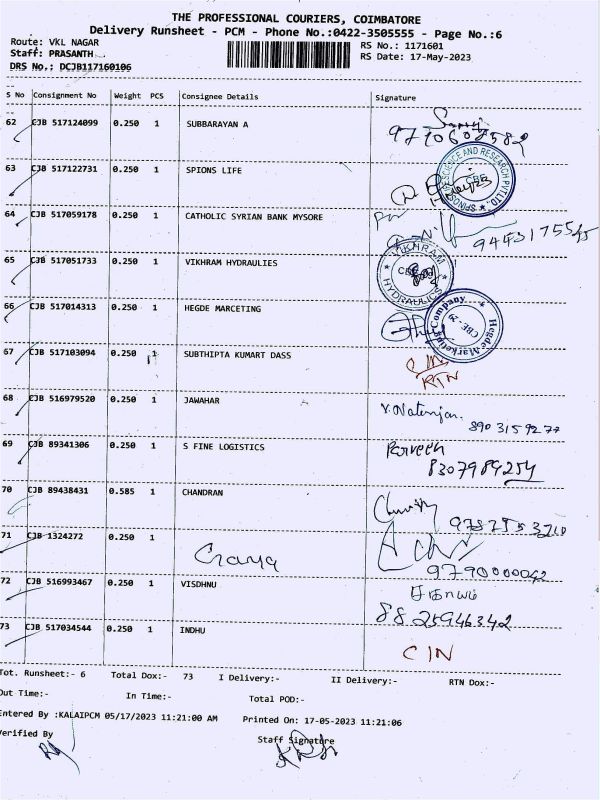 THE PROFESSIONAL COURIERS, COIMBATORE
Delivery Runsheet - PCM - Phone No.:0422-3505555 - Page No.:6
Route: VKL NAGAR
RS No.: 1171601
Staff: PRASANTH
RS Date: 17-May-2023
DRS No.: DCJB117160106
S No Consignment No Weight PCS Consignee Details Signature
62 CJB 517124099 0.250 1 SUBBARAYAN A
63 CJB 517122731 0.250 1 SPIONS LIFE
64 CJB 517059178 0.250 1 CATHOLIC SYRIAN BANK MYSORE
65 CJB 517051733 0.250 1 VIKHRAM HYDRAULIES
VIKHRAM HYDRAULICS
66 CJB 517014313 0.250 1 HEGDE MARCETING
Hegde Marketing Company CBE-29
67 CJB 517103094 0.250 1 SUBTHIPTA KUMART DASS
RTN
68 CJB 516979520 0.250 1 JAWAHAR V.Natenjan.
8903159277
69 CJB 89341306 0.250 1 S FINE LOGISTICS Parveen
8307989254
70 CJB 89438431 0.585 1 CHANDRAN
71 CJB 1324272 0.250 1
9790000042
72 CJB 516993467 0.250 1 VISDHNU
8825946342
73 CJB 517034544 0.250 1 INDHU
CIN
Tot. Runsheet:- 6 Total Dox:- 73 I Delivery:- II Delivery:- RTN Dox:-
Out Time:- In Time:- Total POD:-
Entered By :KALAIPCM 05/17/2023 11:21:00 AM Printed On: 17-05-2023 11:21:06
Verified By Staff Signature